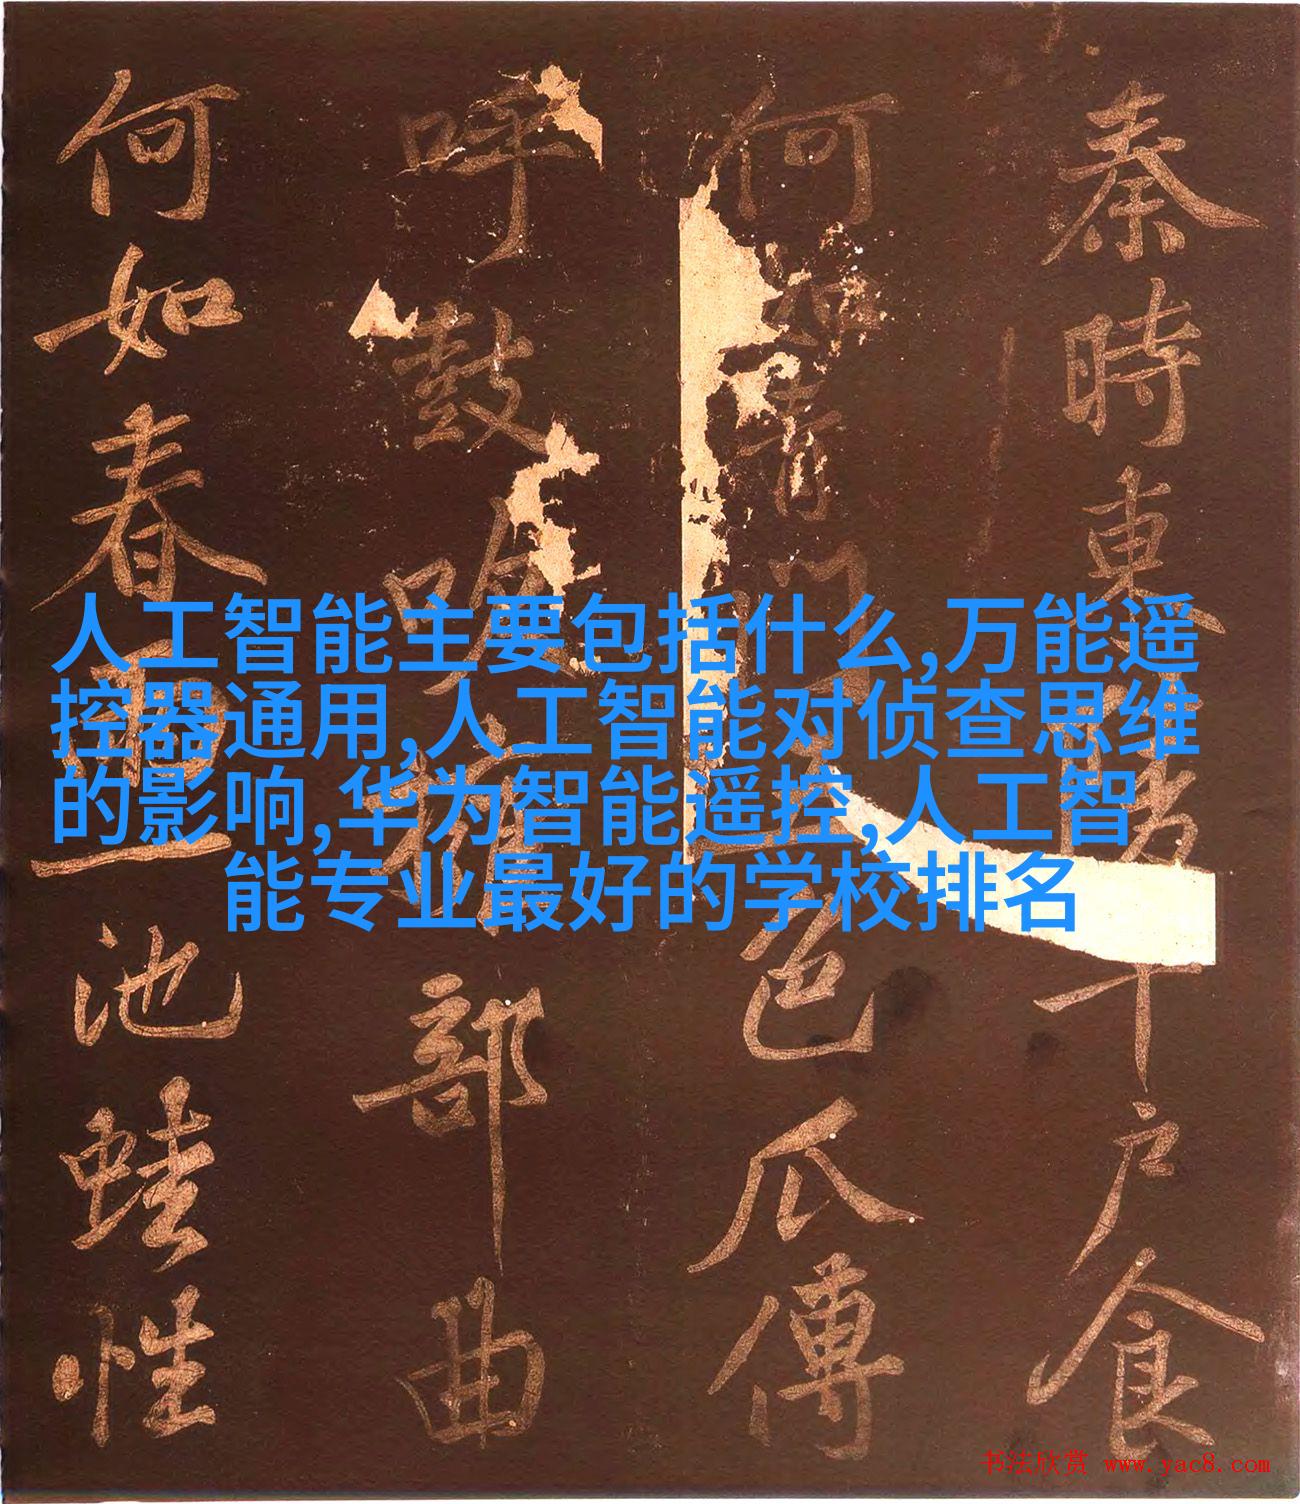 人工智能主要包括什么,万能遥
控器通用,人工智能对侦查思维
的影响,华为智能遥控,人工智
能专业最好的学校排名
秦時東陵千户食
何如青門五色瓜傅
呼鼓吹雍部曲
何如春雨一池蛙性
书法欣赏 www.yac8.com